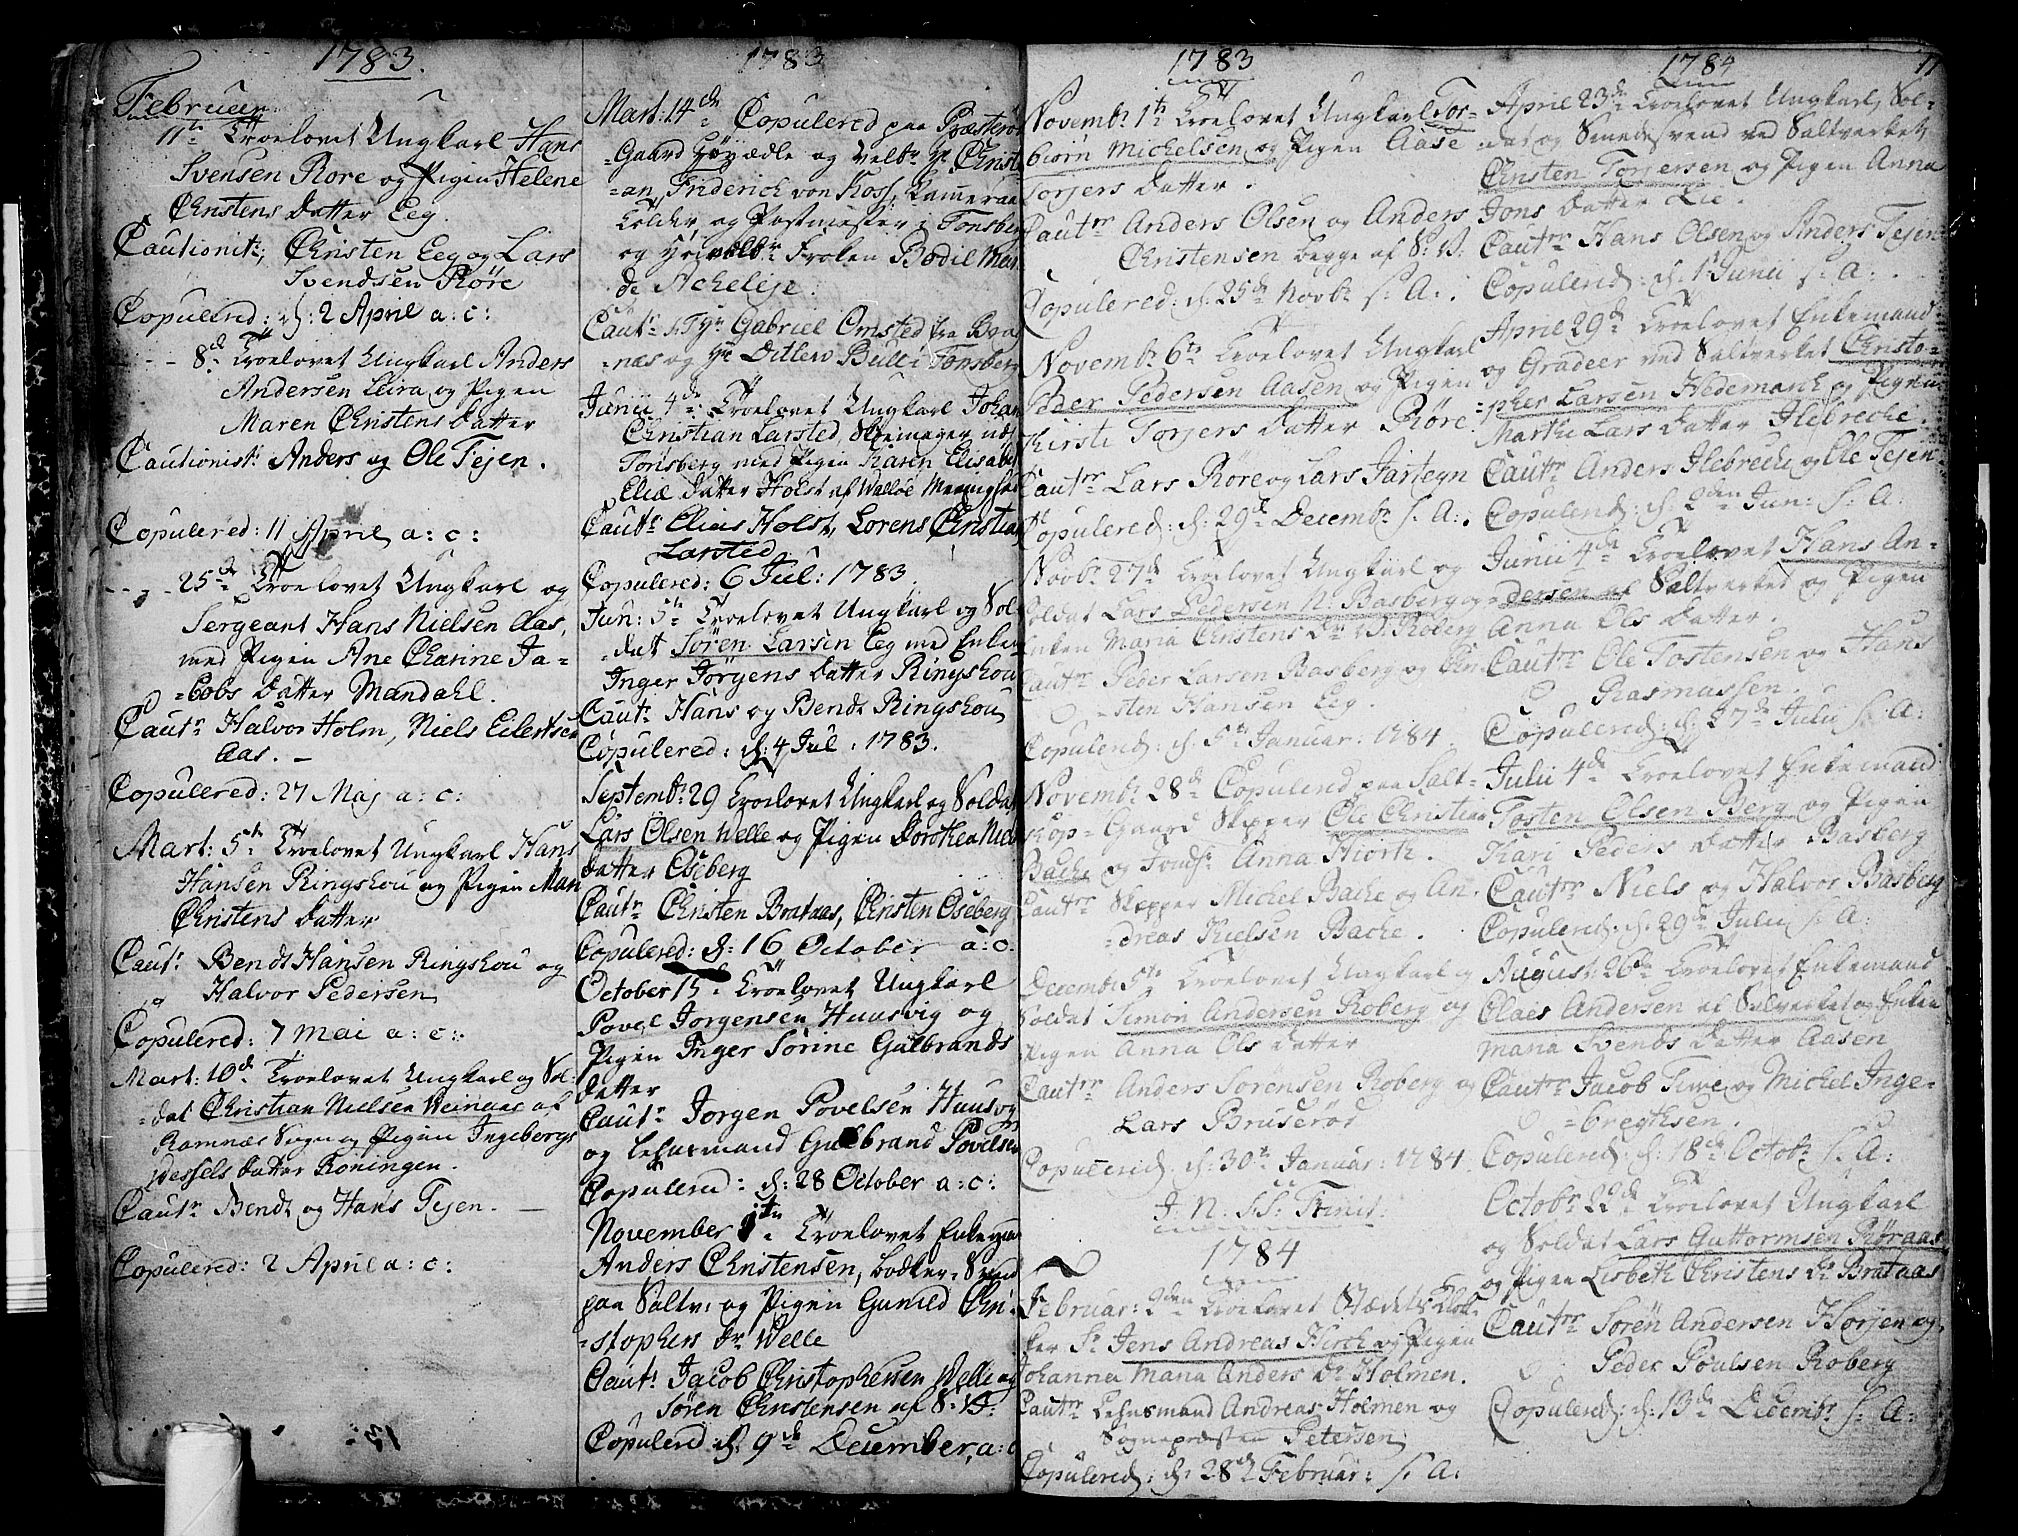 1783.
Februar:
11te Troelovet Ungkarl Hans
Svensen Rore og Pigen Helene
Christens Datter Eeg.
Cautionist:, Christen Eeg og Lars
Svendsen Röre
Copulered: d: 2 April a: c:
8de Troelovet Ungkarl Anders
Andersen Leira og Pigen
Maren Christens Datter
Cautionist: Anders og Ole Tejen.
Copulered: 11 April a: c:
25de Troelovet Ungkarl og
Sergeant Hans Nielsen Aas,
med Pigen Ane Chatrine Ja-
=cobs Datter Mandahl.
Cautr Halvor Holm, Niels Eilertsen
Aas. –
Copulered: 27 Maj a: c:
Mart: 5te Troelovet Ungkarl Hans
Hansen Ringshou og Pigen Mari
Christens Datter
Caut: Bendt Hansen Ringshou og
Halvor Pedersen
Copulered: 7 Mai a: c:
Mart: 10de Troelovet Ungkarl og Sol-
=dat Christian Nielsen af
Ramnæs Sogn og Pigen Ingeborg
Wessels Datter Roningen.
Cautr Bendt og Hans Tejen. –
Copulered: 2 April a: c:
1783
Mart: 14de Copulered paa Præsterød
Gaard Höyædle og Velbr Hr Christi-
=an Friderich von Koss, Cammeraa
og Postmester i Tonsberg
og Froken Bodil Mar-
de Acheleje.
Caut: Gabriel Omsted fra Baa-
næs og Hr Ditlew Bull i Tonsberg
Junii 4de Troelovet Ungkarl Johan
Christian Larsted, ved
Tonsberg med Pigen Karen Elisabet
Eliæ Datter Holst af Walløe
Caut: Elias Holst, Lorens Christian
Larsted
Copulered: 6 Jul: 1783.
Jun: 5te Troelovet Ungkarl og Sol-
=dat Sören Larsen Eeg med Enken
Inger Jörgens Datter Ringshou
Caut: Hans og Bendt Ringshou
Copulered: d: 4 Jul: 1783.
Septembr: 29 Troelovet Ungkarl og Soldat
Lars Olsen Welle og Pigen Dorothea Niels
Datter Oseberg
Cautr Christen Brataas, Christen Oseberg
Copulered: d: 16 October a: c:
October 15de Troelovet Ungkarl
Povel Jorgensen Huusvig og
Pigen Inger Sörine Gulbrands
Datter
Caut: Jorgen Povelsen Huusvig
og Lehnsmand Gulbrand Povelsen
Copulered: d: 28 October a: c:
November 1te Troelovet Enkeman
Anders Christensen, Bödker-Svend
paa Saltv: og Pigen Gunild Chri-
=stophers Dr Welle
Caut: Jacob Christophersen Welle og
Sören Christensen af S: V:
Copulered d: 9de December, a: c
1783
Novembr: 1te Troelovet Ungkarl Tor-
biörn Michelsen og Pigen Aase
Torjers Datter.
Cautrr Anders Olsen og Anders
Christensen begge af S: V:
Copulered: d: 25de Novbr s: A:
Novembr: 6te Troelovet Ungkarl
Peder Pedersen Aasen og Pigen
Kirsti Torjers Datter Röre
Cautrr Lars Röre og Lars Jartegn
Copulered: d: 29de Decembr s: A:
Novbr 27de Troelovet Ungkarl og
Soldat Lars Pedersen N: Basberg og
Enken Maria Christens Dr N: Roberg
Cautrr Peder Larsen Basberg og Chri-
=sten Hansen Eeg.
Copulered: d: 5te Januar: 1784
Novembr: 28de Copulered paa Salt-
Kop-Gaard Skipper Ole Christian
Bache og Anna Hiorth.
Cautrr Skipper Michel Bache og An-
=dreas Nielsen Bache.
Decembr 5te Troelovet Ungkarl og
Soldat Simon Andersen Roberg og
Pigen Anna Ols Datter
Cautrr Anders Sörensen Roberg og
Lars Bruserod
Copulered: d: 30te Januar: 1784
J. N. SS: Trinit:
1784
Februar: 2den Troelovet Stædets Klok-
ker Sr Jens Andreas Hirch og Pigen
Johanna Maria Anders Dr Holmen.
Cautrr Lehnsmand Andreas Holmen og
Sognepræsten Petersen
Copulered: d: 28de Februar: s: A:
1784
11
April 23de Troelovet Ungkarl, Sol-
=dat og Smedesvend ved Saltverket
Christen Torjersen og Pigen Anna
Jons Datter Lie.
Cautrr Hans Olsen og Anders Tejen
Copulered: d: 1 Junii s: A:
April 29de Troelovet Enkemand
og Gradeer ved Saltverket Christo-
=pher Larsen Hedemark og Pigen
Marthe Lars Datter Ilebreche.
Cautrr Anders Ilebreche og Ole Tejen
Copulered: d: 2den Jun: s: A:
Junii 4de Troelovet Hans An-
=dersen af Saltverket og Pigen
Anna Ols Datter.
Cautrr Ole Tostensen og Hans
Rasmussen.
Copulered: d: 27de Julii s: A:
Julii 4de Troelovet Enkemand
Tosten Olsen Berg og Pigen
Kari Peders Datter Basberg
Cautrr Niels og Halvor Basberg
Copulered: d: 29de Julii s: A:
August: 26de Troelovet Enkemand
Claes Andersen af Salverket og Enken
Maria Svends Datter Aasen
Cautrr Jacob Tuve og Michel Inge-
=brechtsen.
Copulered: d: 18de Octobr s: A:
Octobr 22de Troelovet Ungkarl
og Soldat Lars Guttormsen Röraas
og Pigen Lisbeth Christens Dr Brataas
Cautrr Sörön Andersen Horjen og
Peder Poulsen Roberg
Copulered: d: 13de Decembr s: A: